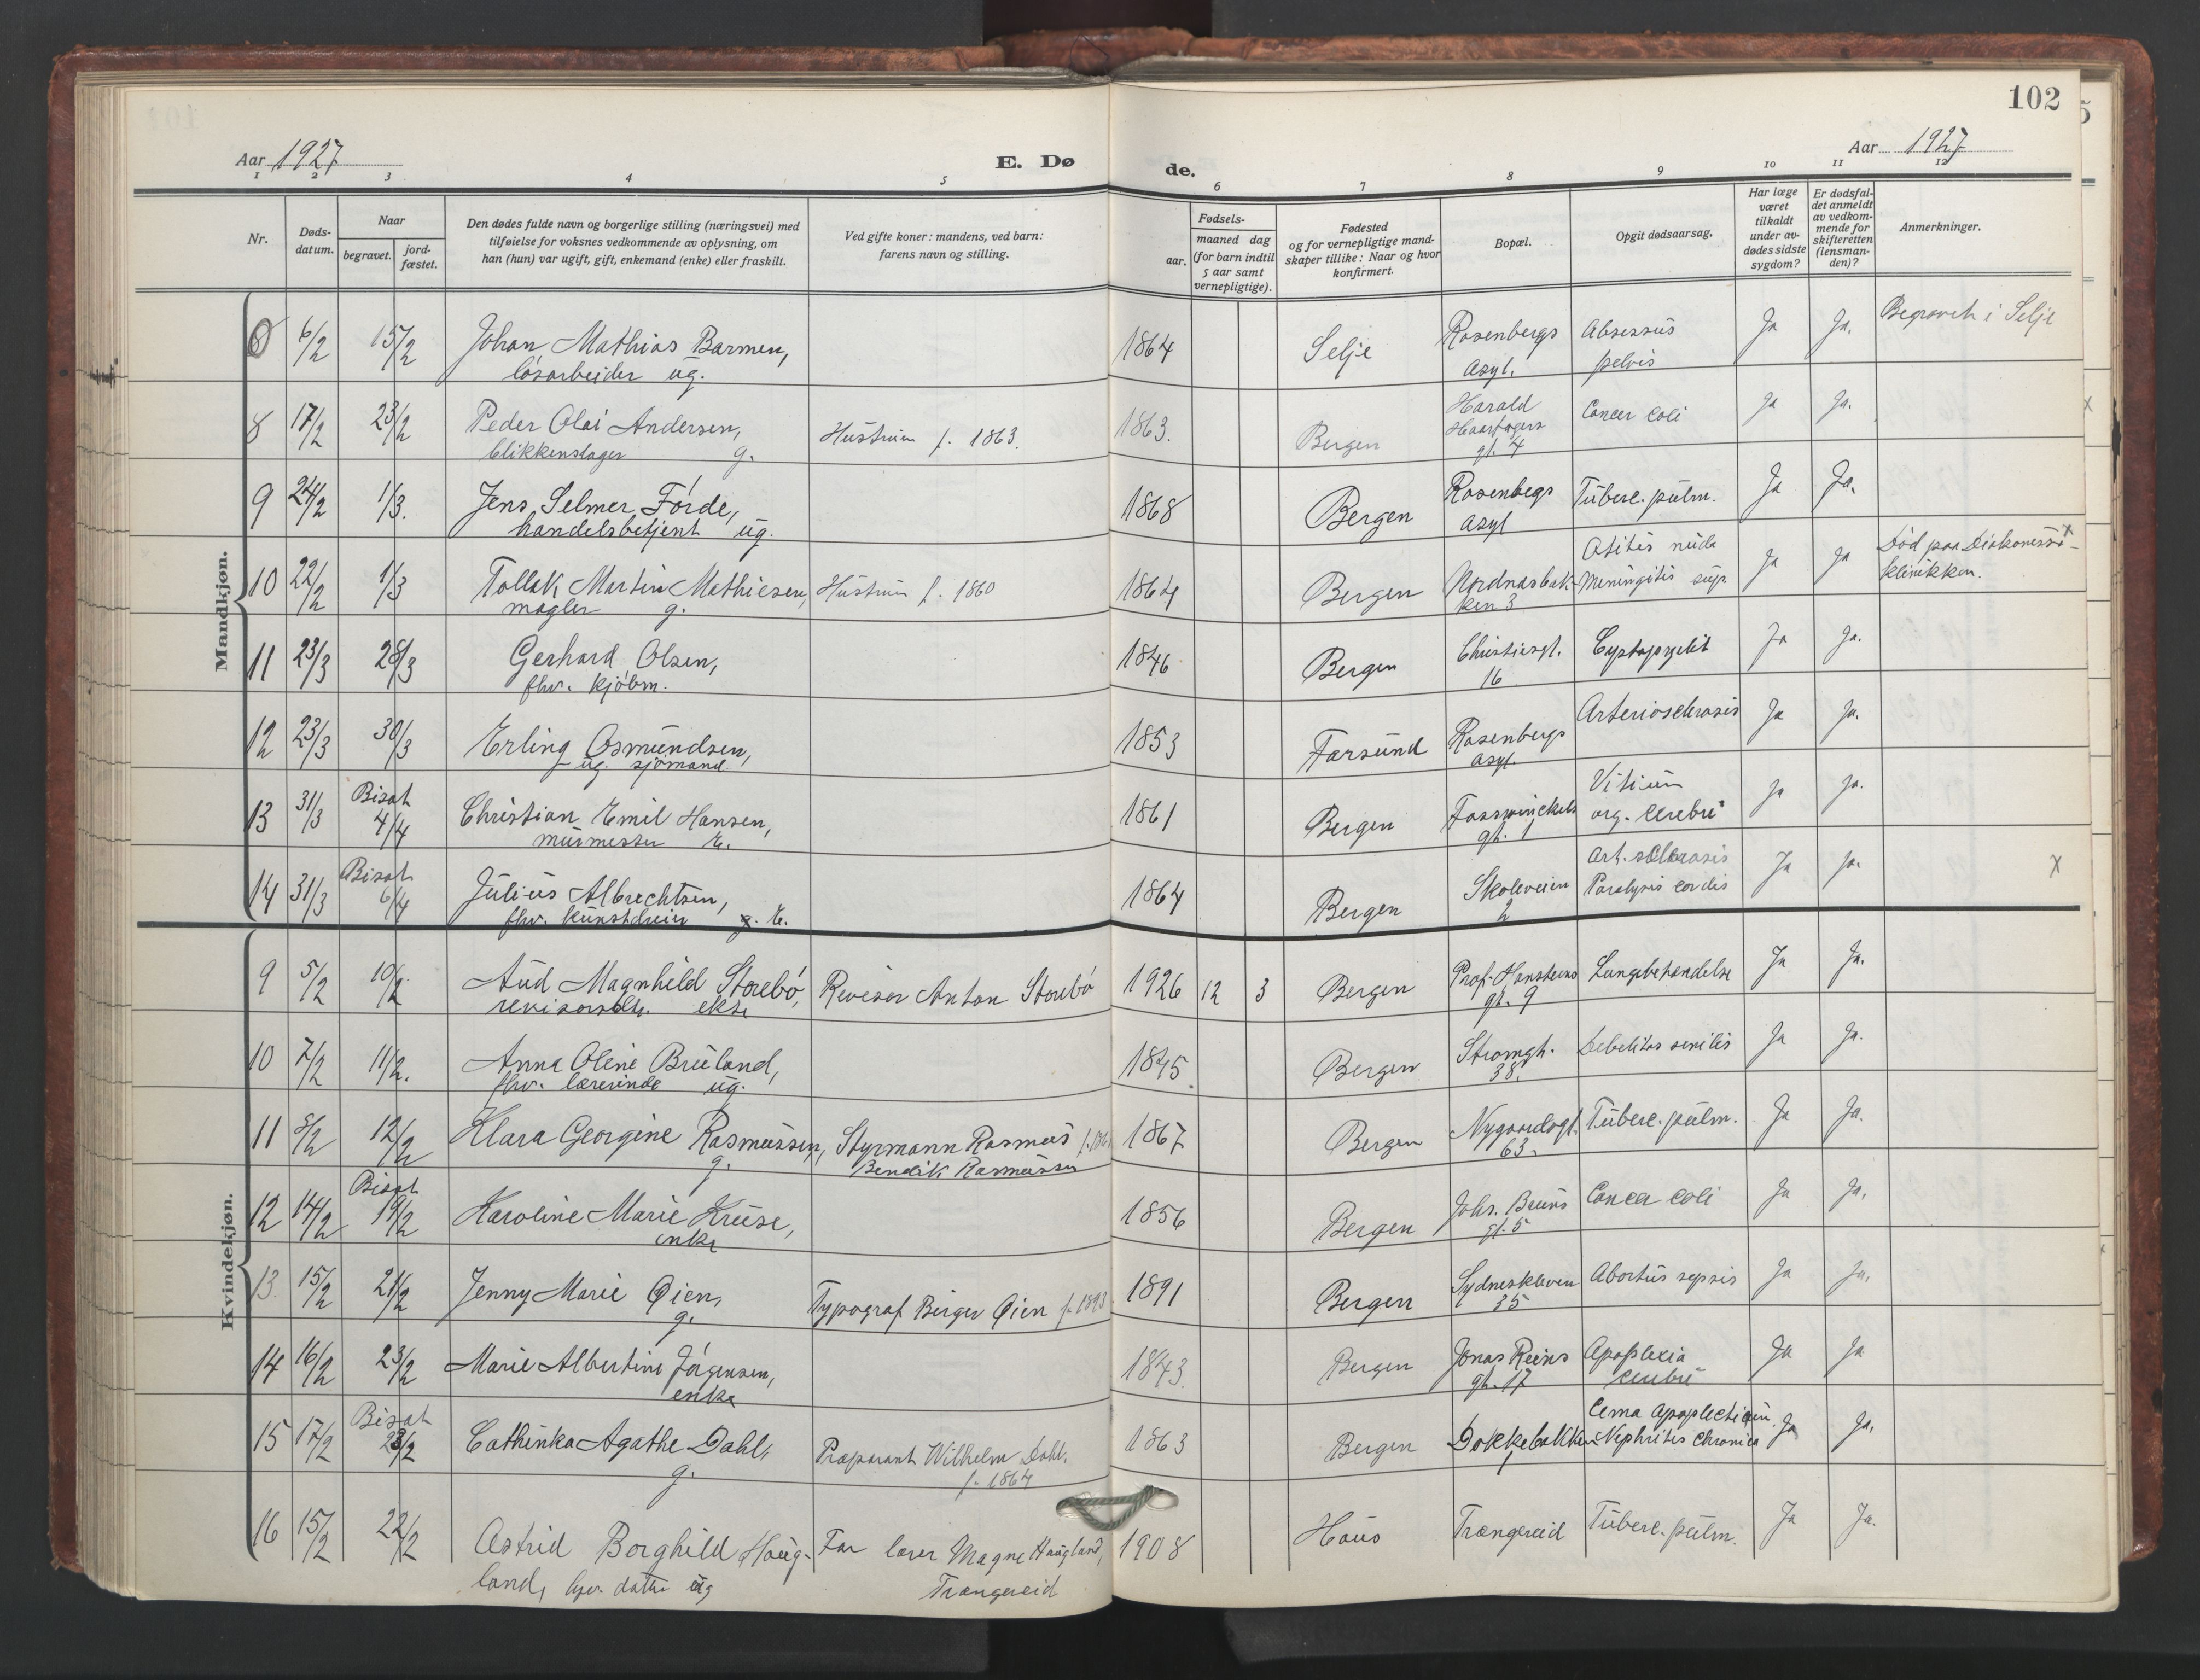 102
Aar 1927
E. Dø
de.
Aar 1927
1 2 3 4 5 6 7 8 9 10 11 12
Nr.
Døds-
datum.
Naar
begravet.
jord-
fæstet.
Den dødes fulde navn og borgerlige stilling (næringsvei) med
tilføielse for voksnes vedkommende av oplysning, om
han (hun) var ugift, gift, enkemand (enke) eller fraskilt.
Ved gifte koner: mandens, ved barn:
farens navn og stilling.
Fødsels-
aar.
maaned dag
(for barn indtil
5 aar samt
vernepligtige).
Fødested
og for vernepligtige mand-
skaper tillike: Naar og hvor
konfirmert.
Bopæl.
Opgit dødsaarsag.
Har læge
været
tilkaldt
under av-
dødes sidste
sygdom?
Er dødsfal-
det anmeldt
av vedkom-
mende for
skifteretten
(lensman-
den)?
Anmerkninger.
Mandkjøn.
8 6/2 15/2 Johan Mathias Barmen, 1864 Selje Rosenbergs Absessus Ja Ja. Begravet i Selje
løsarbeider ug. asyl. pelvis
8 17/2 23/2 Peder Olai Andersen, Hustruen f. 1863. 1863. Bergen Harald Cancer coli Ja Ja.
blikkenslager g. Haarfagers
gt. 4
9 24/2 1/3. Jens Selmer Førde, 1868 Bergen Rosenbegs Tuberc. pulm. Ja Ja.
handelsbetjent ug. asyl
10 22/2 1/3 Tollak Martin Mathiesen, Hustruen f. 1860 1864 Bergen Nordnasbak- Meningitis sup. Ja Ja Død paa Diakonesse-
mægler g. ken 3 klinikken.
11 23/3 28/3 Gerhard Olsen, 1846 Bergen Christiesgt. Cystopyelit Ja Ja.
fhv. kjøbm. 16
12 23/3 30/3 Erling Osmundsen, 1853 Farsund Rosenbergs Arteriosclerosis Ja Ja.
ug. sjømand. asyl.
13 31/3 Bisat 4/4 Christian Emil Hansen, 1861 Bergen Fosswinckels Vitium Ja Ja.
murmester E. gt. 1 org. cerebri
14 31/3 Bisat 6/4 Julius Albrechtsen, 1864 Bergen Skoleveien Art. sclerosis Ja Ja. x
fhv. kunstdreier g. E. 2 Paralysis cordis
Kvindekjøn.
9 5/2 10/2 Aud Magnhild Storebø, Revisor Anton Storebø 1926 12 3 Bergen Prof. Hansteens Lungebetændelse Ja Ja.
revisorsdtr. ekte gt. 9
10 7/2 11/2. Anna Oline Bruland, 1845. Bergen Stromgt. Debelitas senilis Ja Ja.
fhv. lærerinde ug. 38.
11 8/2 12/2 Klara Georgine Rasmussen, Styrmann Rasmus 1867 Bergen Nygaardsgt. Tuberc. pulm. Ja Ja.
g. Bendik Rasmussen 63.
12 14/2 Bisat 19/2 Karoline Marie Kruse, 1856 Bergen Johs. Bruns Cancer coli Ja Ja.
enke gt. 5
13. 15/2 21/2 Jenny Marie Øien, Typograf Birger Øien f. 1893 1891 Bergen Sydneskleven Abortus sepsis Ja Ja.
g. 35
14 16/2 23/2 Marie Albertine Jørgensen, 1843. Bergen Jonas Reins Apoplexia Ja Ja
enke gt. 17 cerebri
15 17/2 Bisat 23/2 Cathinka Agathe Dahl, Præparant Wilhelm Dahl. 1863 Bergen Dokkebakken Nephritis chronica Ja Ja.
g. f. 1864
16 15/2 22/2 Astrid Borghild Haug- Far lærer Magne Haugland, 1908 Haus Trængereid Tuberc. pulm. Ja Ja.
land, hjev. datter ug Trængereid